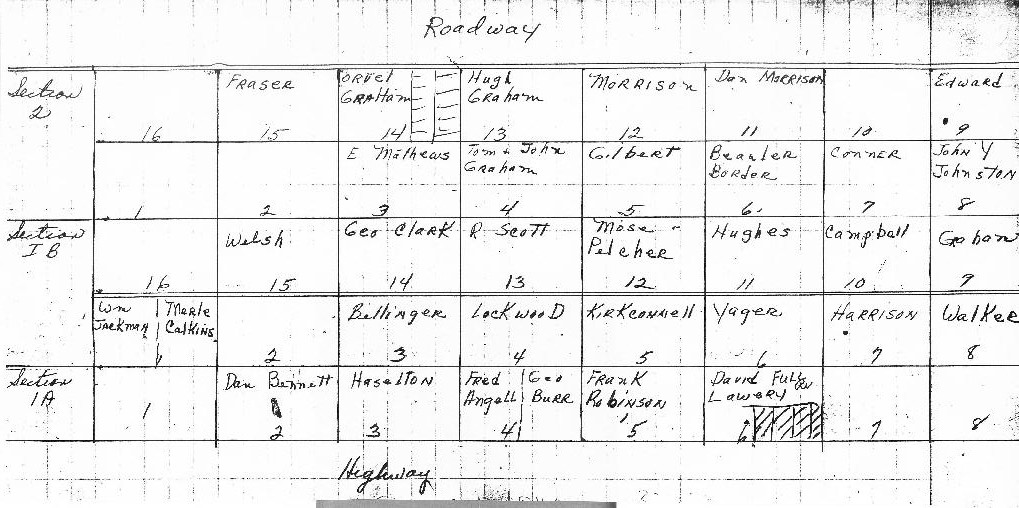 Roadway
Section
2
16
FRASER
15
ORVEL
GRAHAM
14
Hugh
Graham
13
MORRISON
12
Dan MORRISON
11
10
Edward
9
1
2
E Mathews
3
Tom + John
Graham
4
Gilbert
5
Border
6
CONNER
7
John Y
Johnston
8
Section
I B
16
Welsh
15
Geo Clark
14
R Scott
13
Mose
Pelcher
12
Hughes
11
Campbell
10
Gahan
9
Wm
Jackman
Merle
Calkins
2
Bellinger
3
LockwooD
4
KIRKCONNell
5
Yager
6
HARRISON
7
Walker
8
Section
1A
1
Dan Bennett
2
Haselton
3
Fred
Angell
Geo
BURR
4
FRANK
ROBINSON
5
David
Lawery
6
7
8
Highway